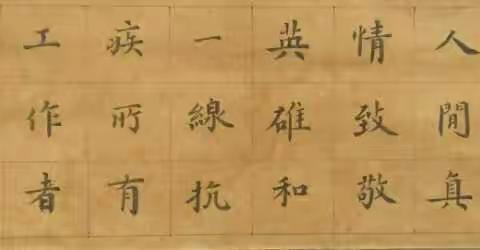 人閒真
情致敬
英雄和
一線抗
疾所有
工作者